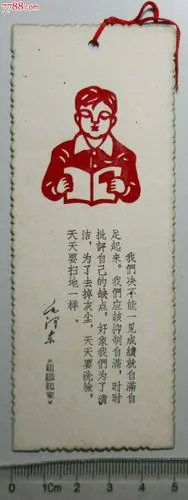 7788.com
我們决不能一見成績就自滿自
足起来。我們应該抑制自滿，时时
批評自己的缺点，好象我們为了清
洁，为了去掉灰尘，天天要洗臉，
天天要扫地一样。
毛泽东
《組織起来》
0 1Cm 2 3 4 5